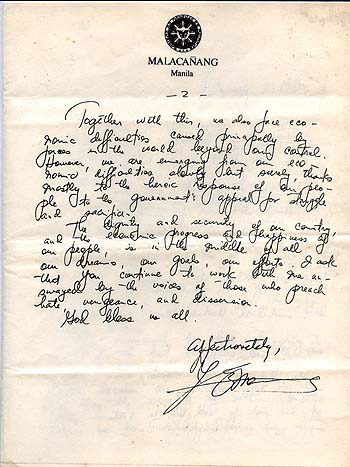 MALACAÑANG
Manila
- 2 -
Together with this, we also face eco-
nomic difficulties caused principally by
forces in the world beyond our control.
However, we are emerging from our eco-
nomic difficulties slowly but surely, thanks
mostly to the heroic response of our peo-
ple to the government's appeal for struggle
and sacrifice.
The dignity and security of our country,
and the economic progress and happiness of
our people, is in the middle of all of
our dreams, our goals, our efforts. I ask
that you continue to work with me un-
swayed by the voices of those who preach
hate, vengeance, and dissension.
God bless us all.
Affectionately,